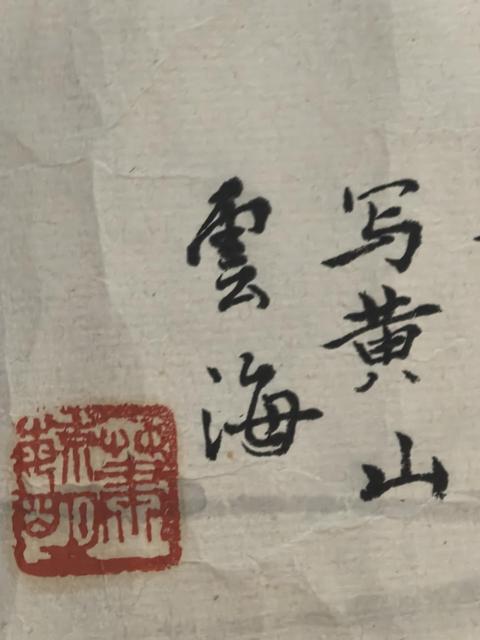 写黄山
雲海